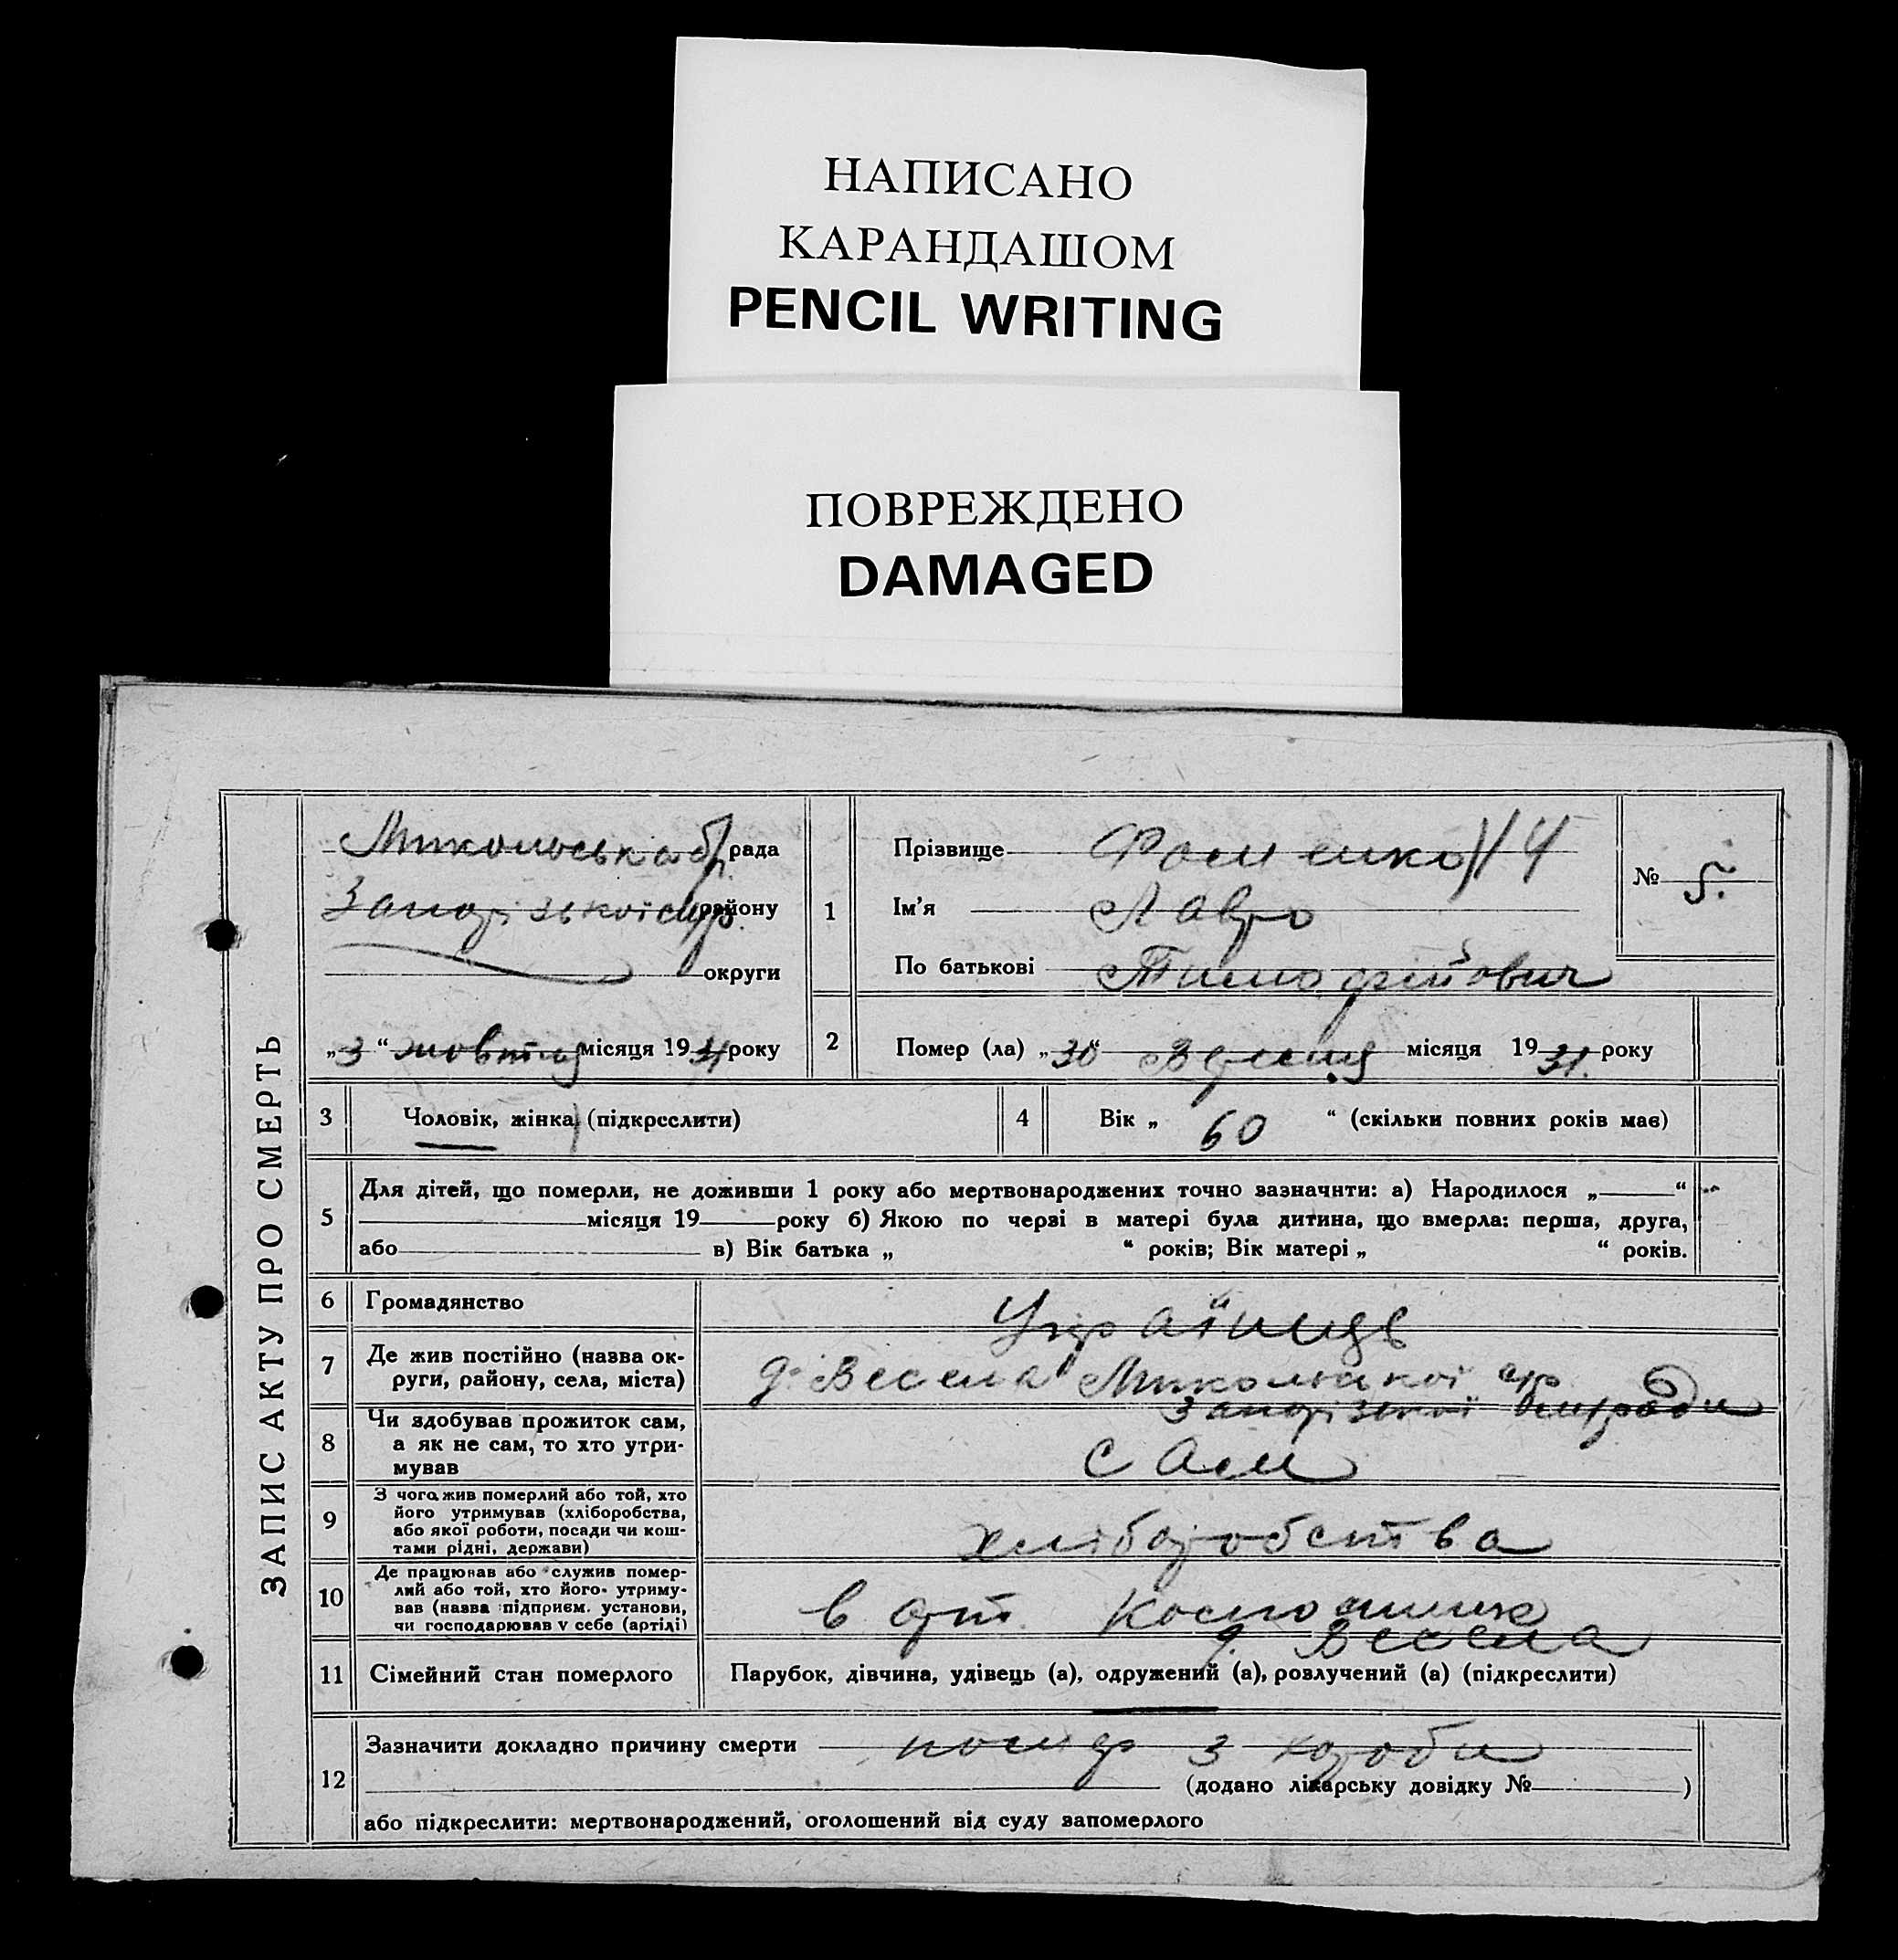 НАПИСАНО
КАРАНДАШОМ
PENCIL WRITING
ПОВРЕЖДЕНО
DAMAGED
ЗАПИС АКТУ ПРО СМЕРТЬ
рада
району
округи
„3“ жовтня місяця 1931 року
1
Прізвище Фоменко
Ім’я Лавро
По батькові Тимофійович
№ 5.
2
Помер (ла) „30“ вересня місяця 1931. року
3
Чоловік, жінка (підкреслити)
4
Вік „ 60 “ (скільки повних років має)
5
Для дітей, що померли, не доживши 1 року або мертвонароджених точно зазначити: а) Народилося „ “
місяця 19 року б) Якою по черзі в матері була дитина, що вмерла: перша, друга,
або в) Вік батька „ “ років; Вік матері „ “ років.
6
Громадянство
Українець
7
Де жив постійно (назва ок-
руги, району, села, міста)
д. Весела
8
Чи здобував прожиток сам,
а як не сам, то хто утри-
мував
сам
9
З чого жив померлий або той, хто
його утримував (хліборобства,
або якої роботи, посади чи кош-
тами рідні, держави)
хліборобства
10
Де працював або служив помер-
лий або той, хто його утриму-
вав (назва підприєм. установи,
чи господарював у себе (артілі)
в арт.
д. Весела
11
Сімейний стан померлого
Парубок, дівчина, удівець (а), одружений (а), розлучений (а) (підкреслити)
12
Зазначити докладно причину смерти помер з хороби
(додано лікарську довідку № )
або підкреслити: мертвонароджений, оголошений від суду запомерлого